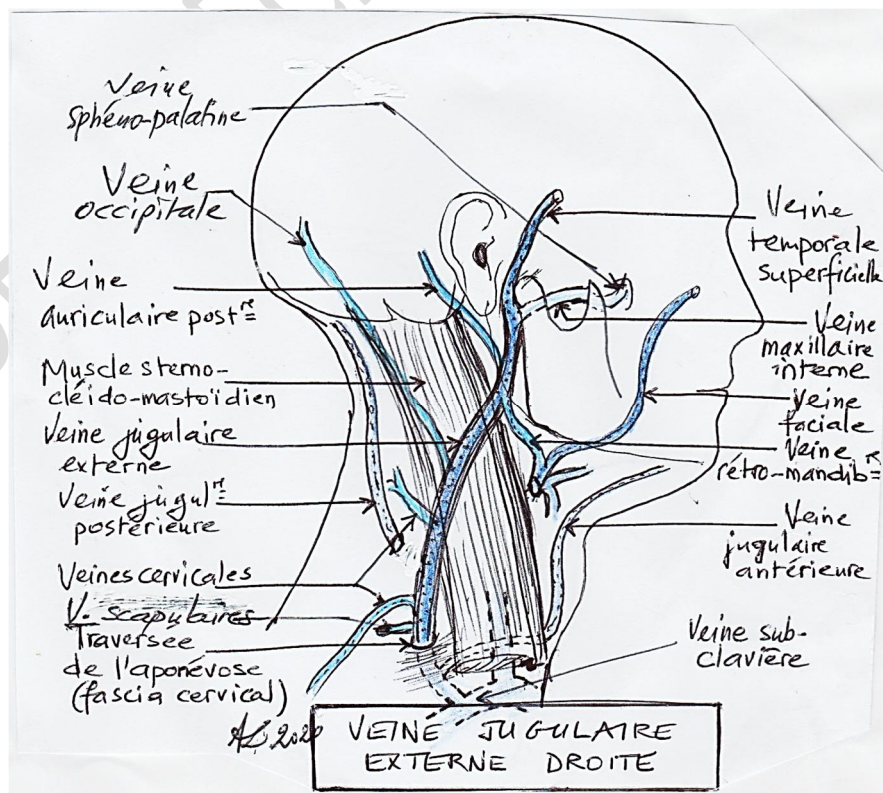 Veine
sphéno-palatine
Veine
occipitale
Veine
auriculaire post^re
Muscle sterno-
cléido-mastoïdien
Veine jugulaire
externe
Veine jugul^re
postérieure
Veines cervicales
V. scapulaires
Traversée
de l'aponévose
(fascia cervical)
Veine
temporale
superficielle
Veine
maxillaire
interne
Veine
faciale
Veine
rétro-mandib^re
Veine
jugulaire
antérieure
Veine sub-
clavière
2020
VEINE JUGULAIRE
EXTERNE DROITE